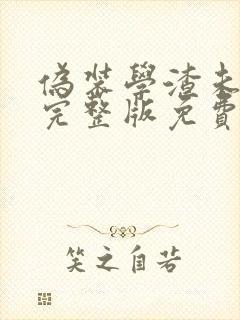 偽裝學渣未
完整版免費
笑之自若